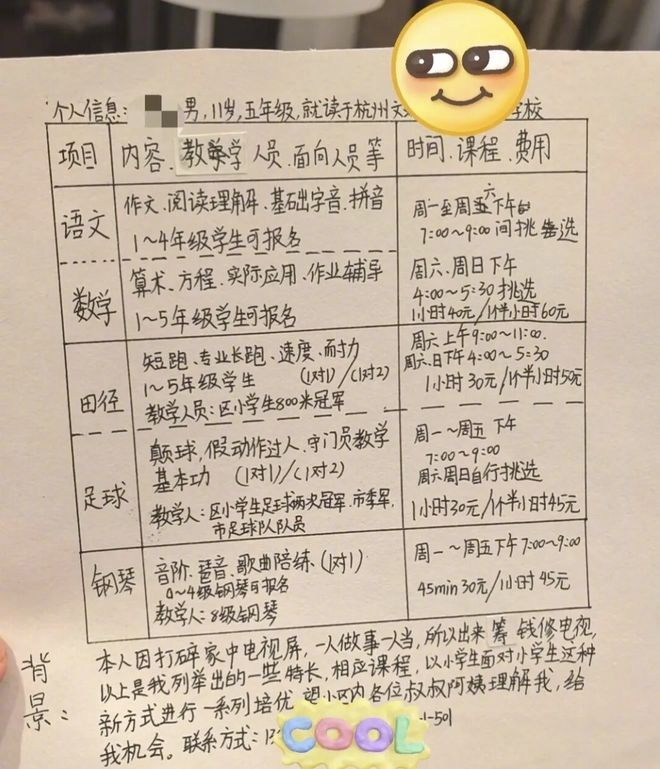 个人信息: 男,11岁,五年级,就读于杭州文 学校
项目 内容、教学人员、面向人员等 时间、课程、费用
语文 作文、阅读理解、基础字音、拼音
1~4年级学生可报名
周一至周六下午的
7:00~9:00间挑选
数学 算术、方程、实际应用、作业辅导
1~5年级学生可报名
周六、周日下午
4:00~5:30挑选
1小时40元/1个半小时60元
田径 短跑、专业长跑、速度、耐力
1~5年级学生 (1对1)/(1对2)
教学人员:区小学生800米冠军
周六上午9:00~11:00.
周六.日下午4:00~5:30
1小时30元/1个半小时50元
足球 颠球,假动作过人.守门员教学
基本功 (1对1)/(1对2)
教学人:区小学生足球两次冠军.市季军,
市足球队队员
周一~周五下午
7:00~9:00
周六周日自行挑选
1小时30元/1个半小时45元
钢琴 音阶、琶音、歌曲陪练、(1对1)
0~4级钢琴可报名
教学人:8级钢琴
周一~周五下午7:00~9:00
45min30元/1小时45元
背景: 本人因打碎家中电视屏,一人做事一人当,所以出来筹钱修电视,
以上是我列举出的一些特长,相应课程,以小学生面对小学生这种
新方式进行一系列培优.望小区内各位叔叔阿姨理解我,给
我机会。联系方式:13 1-501
COOL